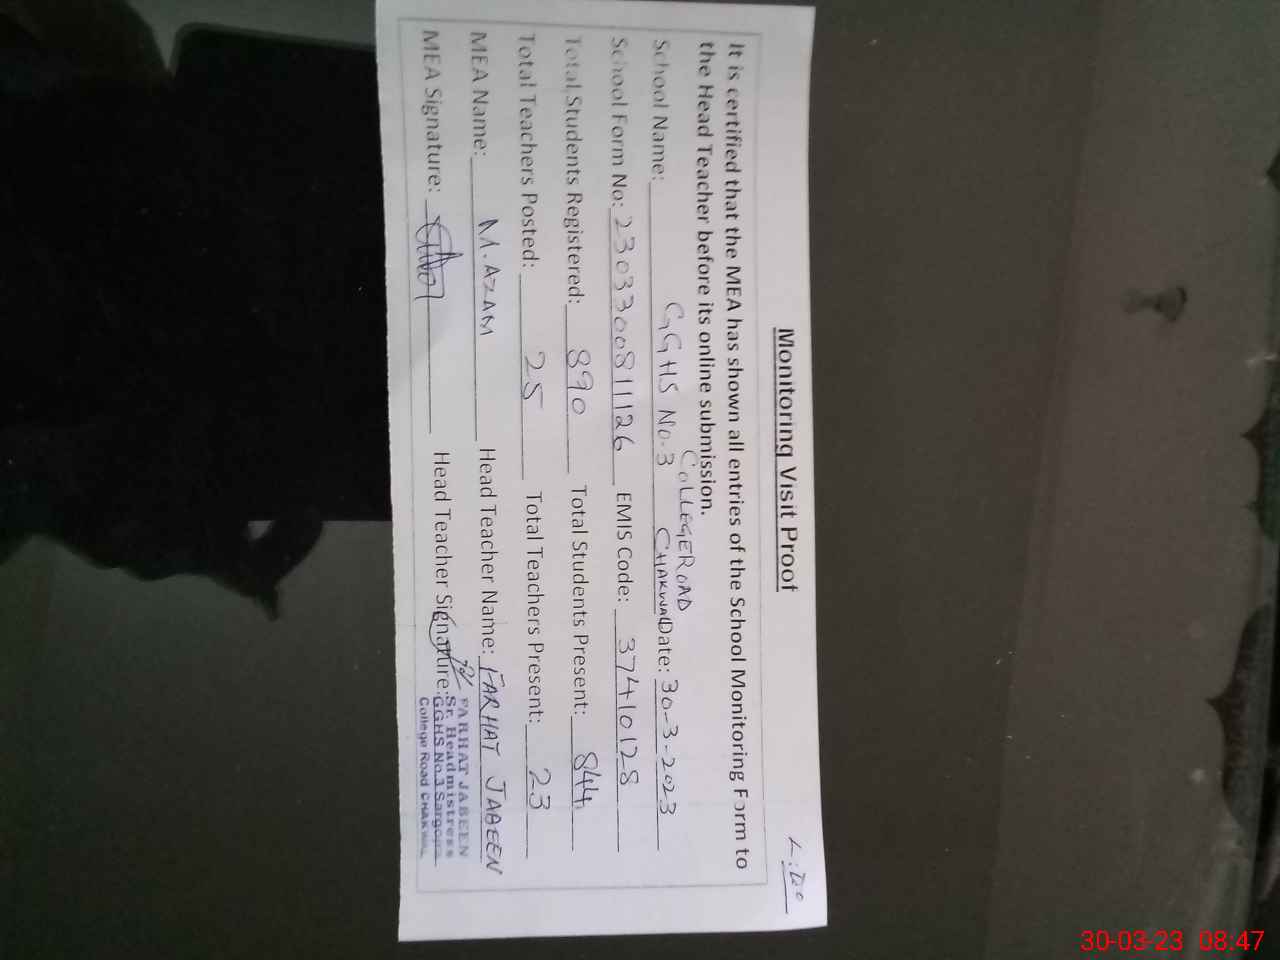 Monitoring Visit Proof
It is certified that the MEA has shown all entries of the School Monitoring Form to
the Head Teacher before its online submission.
COLLEGE ROAD
School Name: GGHS No. 3 CHAKWAL Date: 30-3-2023
School Form No: 2303300811126 EMIS Code: 37410128
Total Students Registered: 890 Total Students Present: 844
Total Teachers Posted: 25 Total Teachers Present: 23
MEA Name: M. AZAM Head Teacher Name: FARHAT JABEEN
MEA Signature: Head Teacher Signature:
FARHAT JABEEN
Sr. Headmistress
GGHS No.3
College Road CHAKWAL
30-03-23 08:47